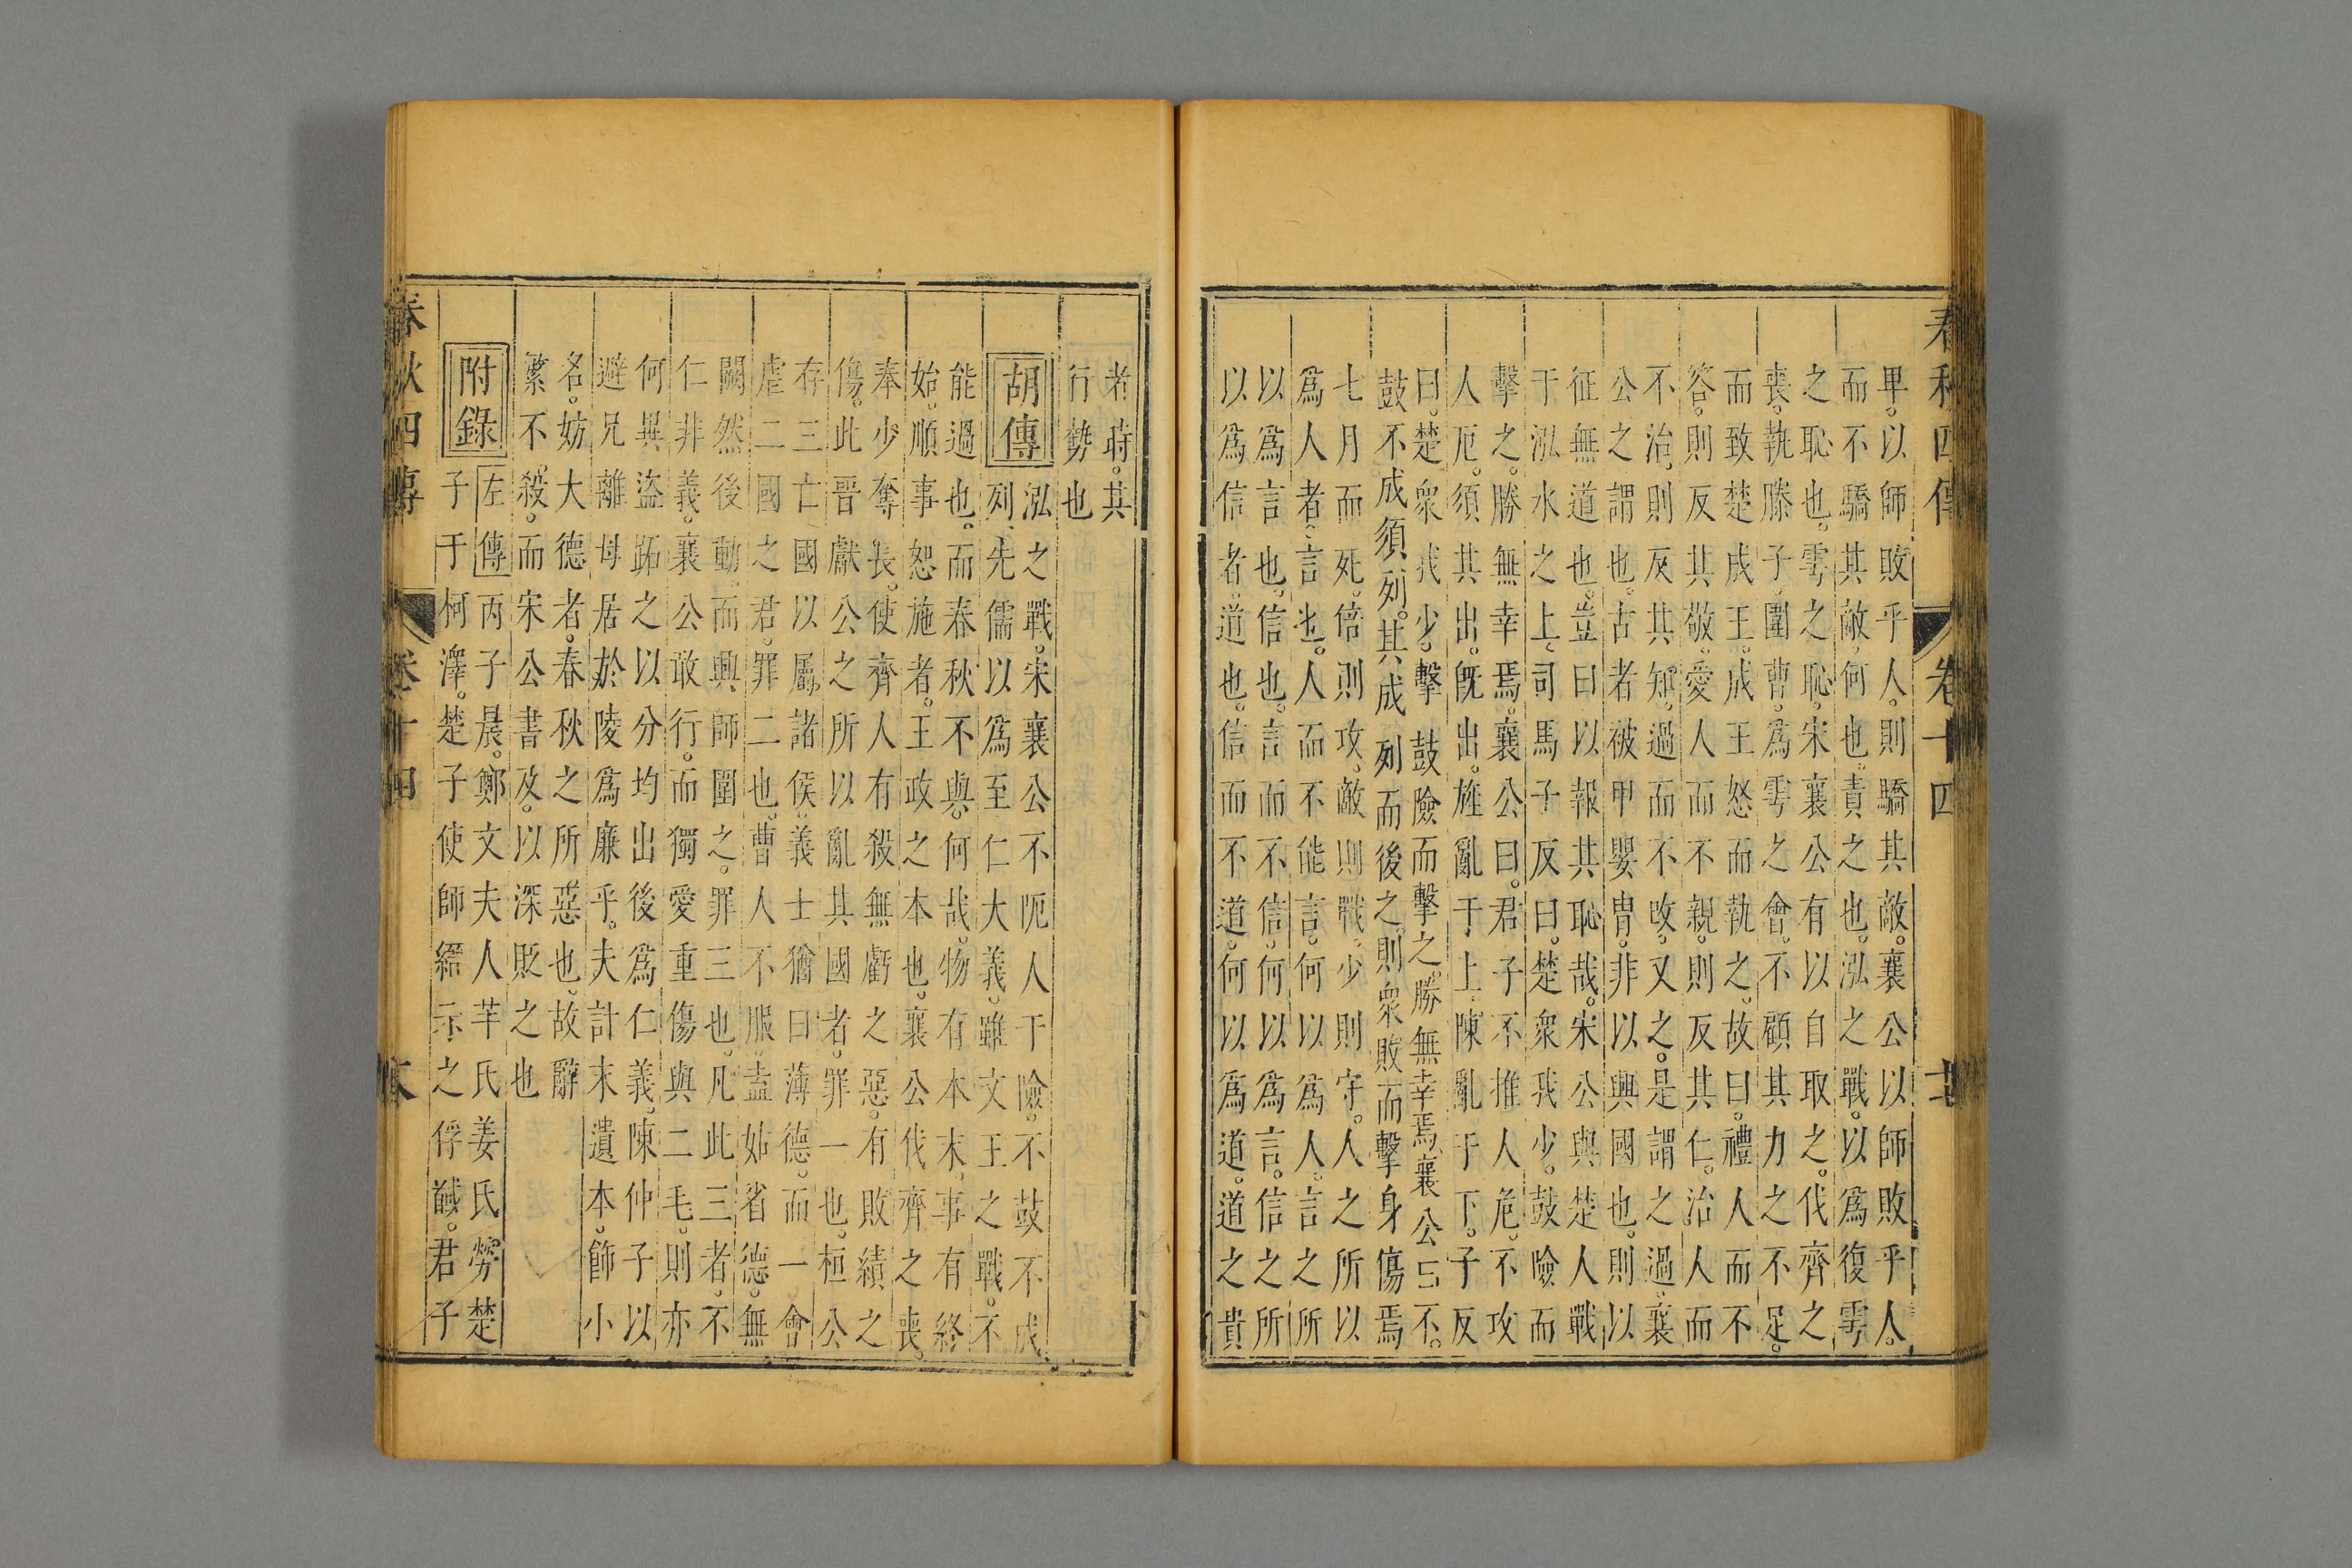 春秋四傳 卷十四
卑。以師敗乎人。則驕其敵。襄公以師敗乎人。
而不驕其敵。何也。責之也。泓之戰。以爲復雩
之恥也。雩之恥。宋襄公有以自取之。伐齊之
喪。執滕子。圍曹。爲雩之會。不顧其力之不足。
而致楚成王。成王怒而執之。故曰。禮人而不
答。則反其敬。愛人而不親。則反其仁。治人而
不治。則反其知。過而不改。又之。是謂之過。襄
公之謂也。古者被甲嬰冑。非以興國也。則以
征無道也。豈曰以報其恥哉。宋公與楚人戰
于泓水之上。司馬子反曰。楚衆我少。鼓險而
擊之。勝無幸焉。襄公曰。君子不推人危。不攻
人厄。須其出。旣出。旌亂于上。陳亂于下。子反
曰。楚衆我少。擊 鼓險而擊之。勝無幸焉。襄公曰不。
鼓不成須列。其成 列而後之。則衆敗而擊身傷焉
七月而死。倍則攻。敵則戰。少則守。人之所以
爲人者。言也。人而不能言。何以爲人。言之所
以爲言也。信也。言而不信。何以爲言。信之所
以爲信者。道也。信而不道。何以爲道。道之貴
者時。其
行勢也
胡傳 泓之戰。宋襄公不阨人于險。不鼓不成
列。先儒以爲至仁大義。雖文王之戰。不
能過也。而春秋不與。何哉。物有本末。事有終
始。順事恕施者。王政之本也。襄公伐齊之喪。
奉少奪長。使齊人有殺無虧之惡。有敗績之
傷。此晉獻公之所以亂其國者。罪一也。桓公
存三亡國以屬諸侯。義士猶曰薄德。而一會
虐二國之君。罪二也。曹人不服。盍姑省德。無
闕然後動。而興師圍之。罪三也。凡此三者。不
仁非義。襄公敢行。而獨愛重傷與二毛。則亦
何異盜跖之以分均出後爲仁義。陳仲子以
避兄離母居於陵爲廉乎。夫計末遺本。飾小
名。妨大德者。春秋之所惡也。故辭
繁不殺。而宋公書及。以深貶之也
附錄 左傳 丙子晨。鄭文夫人芊氏姜氏勞楚
子于柯澤。楚子使師縉示之俘馘。君子
春秋四傳 卷十四